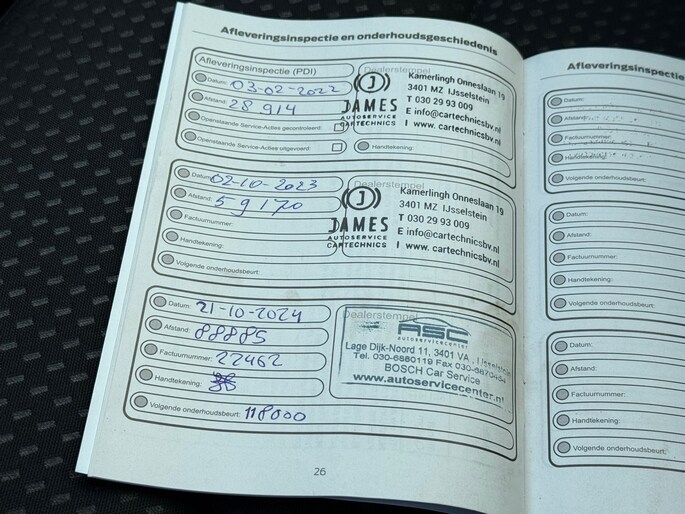 Afleveringsinspectie en onderhoudsgeschiedenis
Afleveringsinspectie (PDI)
Datum: 03-02-2022
Afstand: 28914
Openstaande Service-Acties gecontroleerd:
Openstaande Service-Acties uitgevoerd:
Dealerstempel
JAMES
AUTOSERVICE
CARTECHNICS
Kamerlingh Onneslaan 19
3401 MZ IJsselstein
T 030 29 93 009
E info@cartechnicsbv.nl
I www. cartechnicsbv.nl
Handtekening:
Datum: 02-10-2023
Afstand: 59170
Factuurnummer:
Handtekening:
Volgende onderhoudsbeurt:
Dealerstempel
JAMES
AUTOSERVICE
CARTECHNICS
Kamerlingh Onneslaan 19
3401 MZ IJsselstein
T 030 29 93 009
E info@cartechnicsbv.nl
I www. cartechnicsbv.nl
Datum: 21-10-2024
Afstand: 88885
Factuurnummer: 22462
Handtekening:
Volgende onderhoudsbeurt: 118000
Dealerstempel
ASC
autoservicecenter
Lage Dijk-Noord 11, 3401 VA, IJsselstein
Tel. 030-6880119 Fax
BOSCH Car Service
www.autoservicecenter.nl
26
Afleveringsinspectie
Datum:
Afstand:
Factuurnummer:
Handtekening:
Volgende onderhoudsbeurt:
Datum:
Afstand:
Factuurnummer:
Handtekening:
Volgende onderhoudsbeurt:
Datum:
Afstand:
Factuurnummer:
Handtekening:
Volgende onderhoudsbeurt: